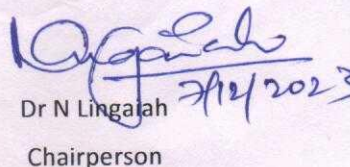 7/12/2023
Dr N Lingaiah
Chairperson